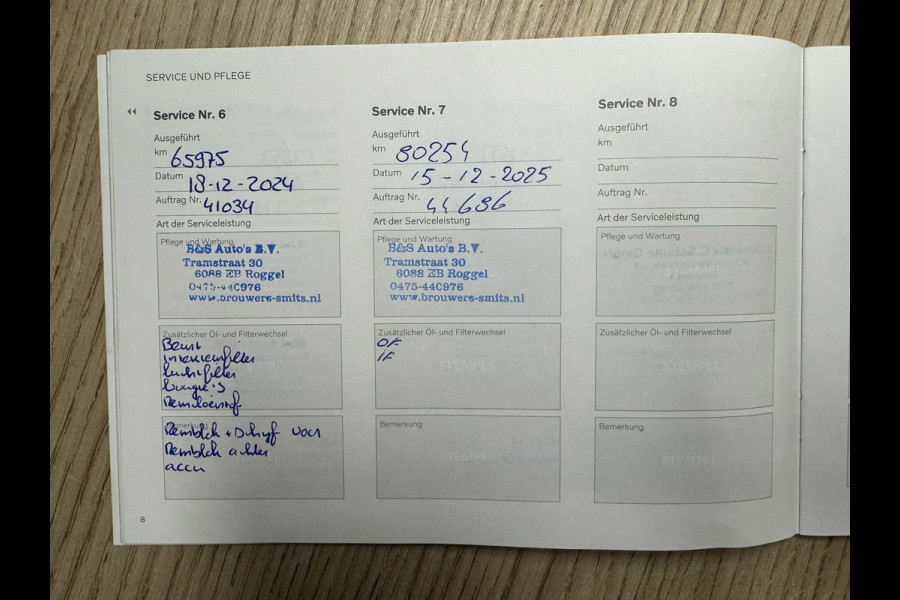 SERVICE UND PFLEGE
Service Nr. 6
Ausgeführt
km 65975
Datum 18-12-2024
Auftrag Nr. 41034
Art der Serviceleistung
Pflege und Wartung
B&S Auto's B.V.
Tramstraat 30
6088 EB Roggel
0475-440976
www.brouwers-smits.nl
Zusätzlicher Öl- und Filterwechsel
Beurt
interieurfilter
luchtfilter
bougie's
Remvloeistof
Bemerkung
Remblok + Schijf voor
Remblok achter
accu
8
Service Nr. 7
Ausgeführt
km 80254
Datum 15-12-2025
Auftrag Nr. 44686
Art der Serviceleistung
Pflege und Wartung
B&S Auto's B.V.
Tramstraat 30
6088 EB Roggel
0475-440976
www.brouwers-smits.nl
Zusätzlicher Öl- und Filterwechsel
OF
IF
STEMPEL
Bemerkung
STEMPEL
Service Nr. 8
Ausgeführt
km
Datum
Auftrag Nr.
Art der Serviceleistung
Pflege und Wartung
Zusätzlicher Öl- und Filterwechsel
STEMPEL
Bemerkung
STEMPEL